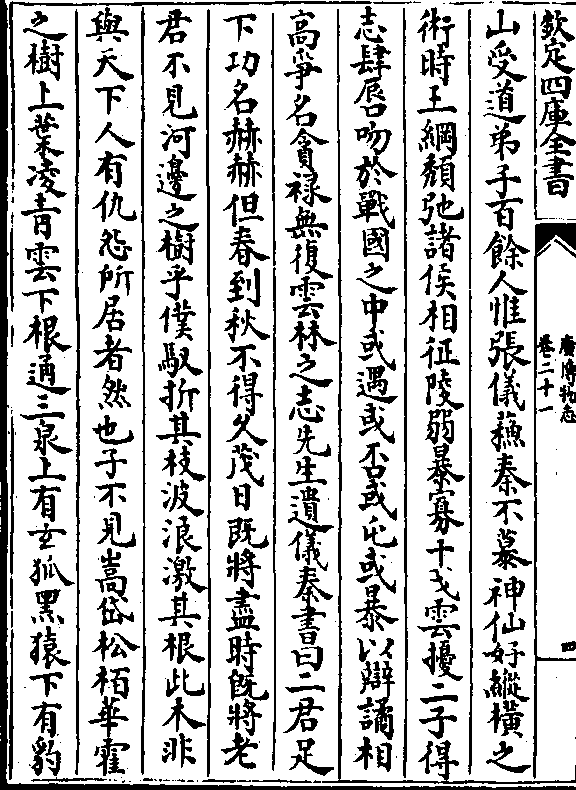 欽定四庫全書
廣博物志
卷二十一
四
山受道弟子百餘人惟張儀蘓秦不慕神仙好縱橫之
術時王綱頽弛諸侯相征陵弱暴寡干戈雲擾二子得
志肆唇吻於戰國之中或遇或否或屯或暴以辯譎相
高爭名貪祿無復雲林之志先生遺儀秦書曰二君足
下功名赫赫但春到秋不得久茂日既將盡時既將老
君不見河邊之樹乎僕馭折其枝波浪激其根此木非
與天下人有仇怨所居者然也子不見嵩岱松栢華霍
之樹上葉凌青雲下根通三泉上有玄狐黑猿下有豹